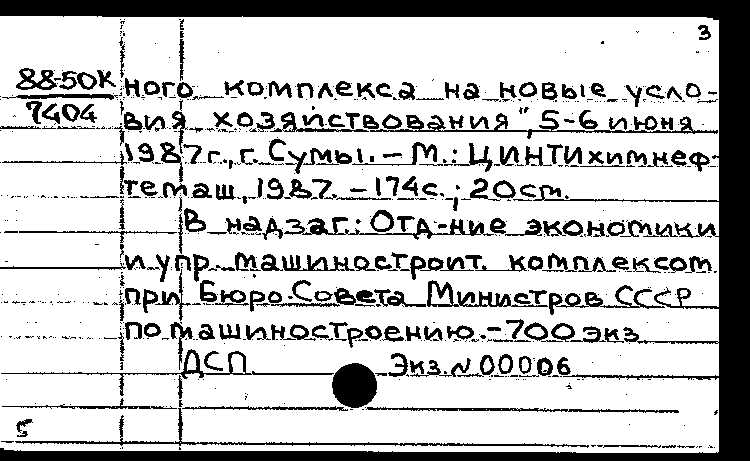 3
88-50К
7404
ного комплекса на новые усло-
вия хозяйствования", 5-6 июня
1987г., г. Сумы. – М.: ЦИНТИхимнеф-
темаш, 1987. – 174с.; 20см.
В надзаг.: Отд-ние экономики
и упр. машиностроит. комплексом
при Бюро Совета Министров СССР
по машиностроению. – 700 экз
ДСП. Экз. N 00006
5